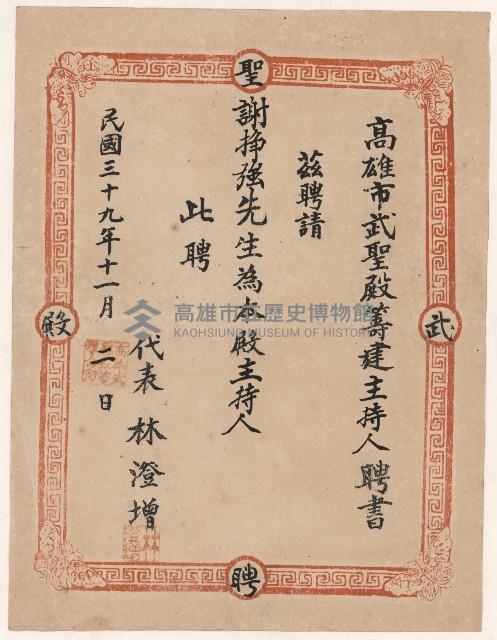 高雄市武聖殿籌建主持人聘書
茲聘請
謝挣强先生為本殿主持人
此聘
代表 林澄增
民國三十九年十一月二日
聖
武
殿
聘
高雄市立歷史博物館
KAOHSIUNG MUSEUM OF HISTORY